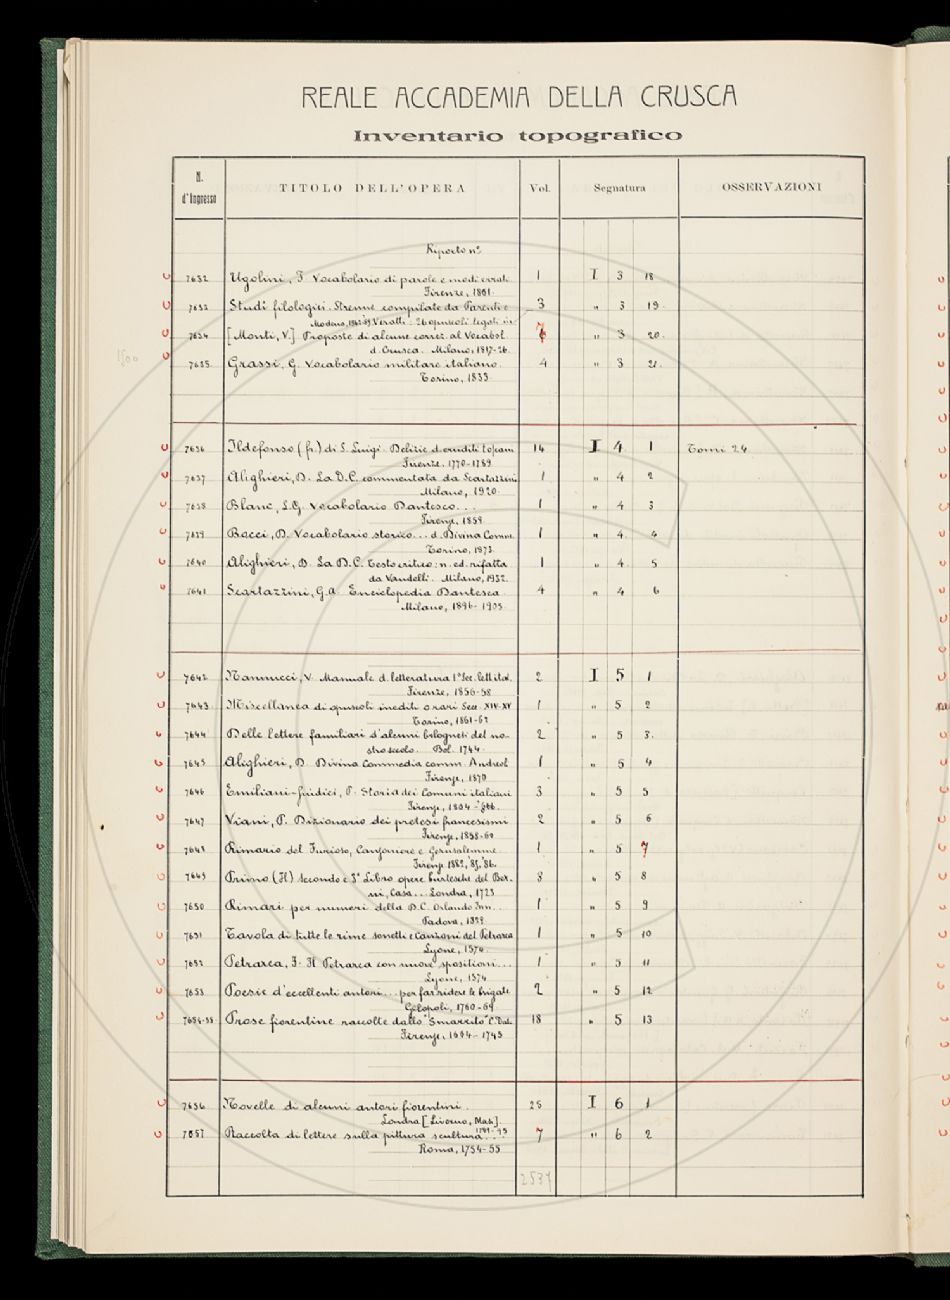 REALE ACCADEMIA DELLA CRUSCA
Inventario topografico
N. d'Ingresso TITOLO DELL'OPERA Vol. Segnatura OSSERVAZIONI
Riporto nº
7632 Ugolini, F. Vocabolario di parole e modi errati 1 I 3 18
Firenze, 1861.
7633 Studî filologici. Strenne compilate da Parenti e 3 " 3 19.
Modena, Veratti. 26 opuscoli legati in
7634 [Monti, V.] Proposte di alcune correz. al Vocabol. 7 " 3 20.
d. Crusca. Milano, 1817-26.
1500
7635. Grassi, G. Vocabolario militare italiano. 4 " 3 21.
Torino, 1833.
7636 Ildefonso (fr.) di S. Luigi. Delizie d. eruditi toscani 14 I 4 1 Tomi 24
Firenze. 1770-1789.
7637 Alighieri, D. La D.C. commentata da Scartazzini 1 " 4 2
Milano, 1920.
7638 Blanc, L.G. Vocabolario Dantesco... 1 " 4 3
Firenze, 1859.
7639 Bocci, D. Vocabolario storico... d. Divina Comm. 1 " 4. 4
Torino, 1873.
7640 Alighieri, D. La D.C. Testo critico: n. ed. rifatta 1 " 4. 5
da Vandelli. Milano, 1932.
7641 Scartazzini, G.A. Enciclopedia Dantesca. 4 " 4 6
Milano, 1896-1905.
7642 Nannucci, V. Manuale d. letteratura 1º Sec. lett. ital. 2 I 5 1
Firenze, 1856-58
7643. Miscellanea di opuscoli inediti o rari Sec. XIV-XV 1 " 5 2
Torino, 1861-62
7644 Delle lettere familiari d'alcuni bolognesi del no- 2 " 5 3.
stro secolo. Bol. 1744.
7645 Alighieri, D. Divina Commedia comm. Andreol 1 " 5 4
Firenze, 1870
7646 Emiliani-Giudici, P. Storia dei Comuni italiani 3 " 5 5
Firenze, 1864-'66.
7647 Viani, P. Dizionario dei pretesi francesismi 2 " 5 6
Firenze, 1858-60
7648 Rimario del Furioso, Canzoniere e Gerusalemme. 1 " 5 7
Firenze 1882, '85, '86.
7649 Primo (Il) secondo e 3º Libro opere burlesche del Ber- 3 " 5 8
ni, Casa... Londra, 1723
7650 Rimari per numeri della D.C. Orlando Inn... 1 " 5 9
Padova, 1829
7651 Tavola di tutte le rime sonetti e canzoni del Petrarca 1 " 5 10
Lyone, 1574
7652 Petrarca, F. Il Petrarca con nuove spositioni... 1 " 5 11
Lyone, 1574
7653 Poesie d'eccellenti autori... per far ridere le brigate 2 " 5 12
Gelopoli, 1760-69
7654-55 Prose fiorentine raccolte dallo "Smarrito" C. Dati. 18 " 5 13
Firenze, 1694-1745
7656 Novelle di alcuni autori fiorentini. 25 I 6 1
Londra [Livorno, Masi].
1791-95
7657 Raccolta di lettere sulla pittura scultura... 7 " 6 2
Roma, 1754-55
2537